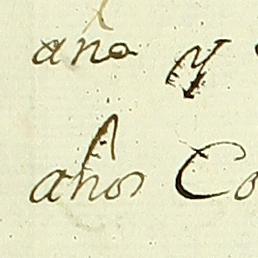 año y
años Co